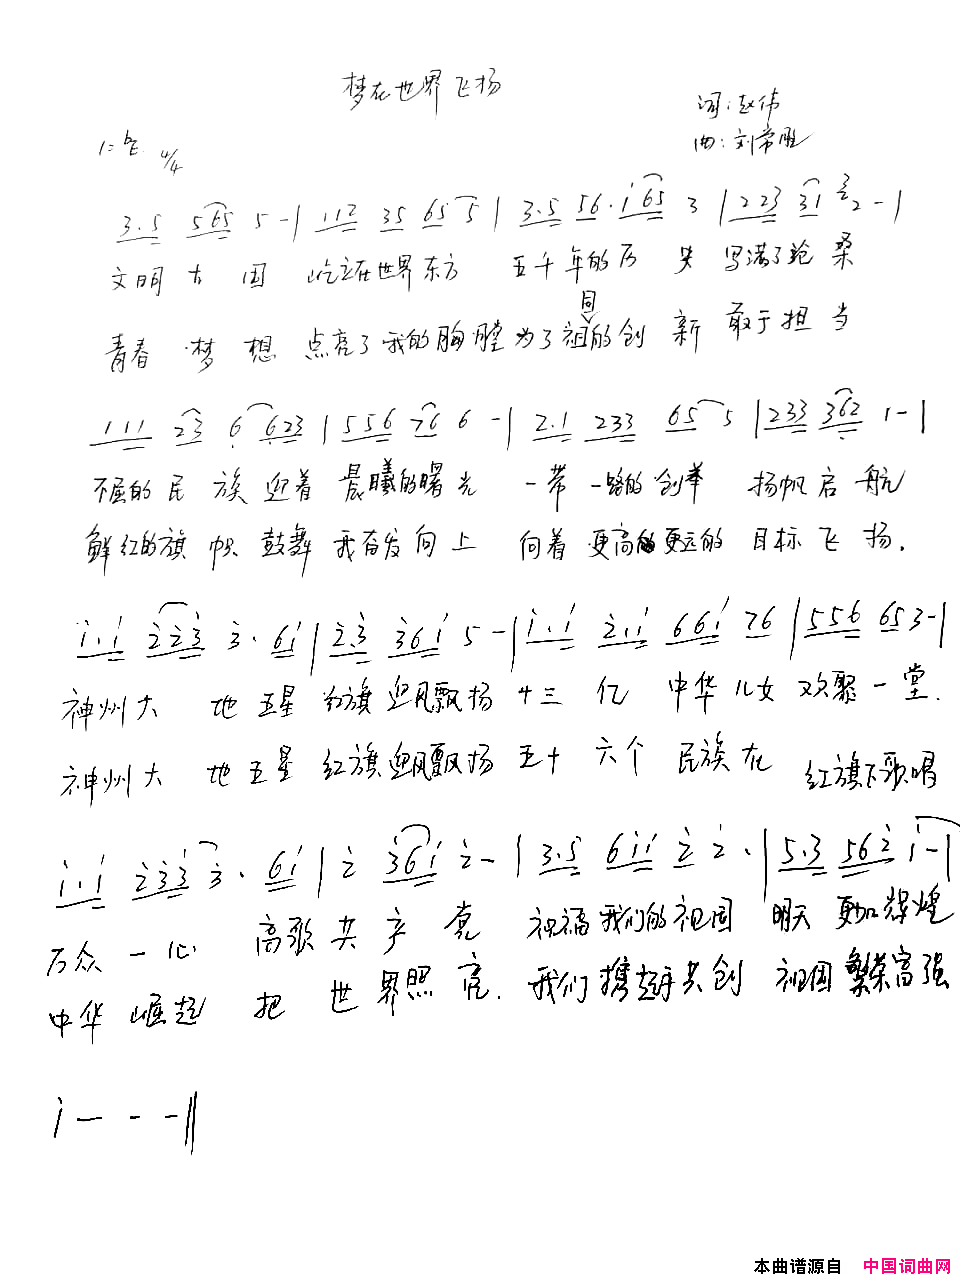 梦在世界飞扬
词:赵伟
1=♭E 4/4
曲:刘常胜
3.5 565 5-|112 35 65 5|3.5 56.i 65 3|223 31 2-|
文明古国 屹立在世界东方 五千年的历史 写满了沧桑
青春梦想 点亮了我的胸膛 为了祖国的创新 敢于担当
111 23 6 623|556 76 6-|2.1 233 65 5|233 362 1-|
不屈的民族 迎着晨曦的曙光 一带一路的创举 扬帆启航
鲜红的旗帜 鼓舞我奋发向上 向着更高的更远的目标飞扬.
i.i 223 3. 6i|2.3 36i 5-|i.i 2.i 66i 76|556 653-|
神州大地 五星红旗迎风飘扬 十三亿 中华儿女 欢聚一堂.
神州大地 五星红旗迎风飘扬 五十六个 民族在 红旗下歌唱
i.i 233 3. 6i|2 36i 2-|3.5 6ii 2 2.|5.3 562 i-|
万众一心 高歌共产党 祝福我们的祖国 明天更加辉煌
中华崛起 把世界照亮. 我们携起手共创 祖国繁荣富强
i - - -‖
本曲谱源自 中国词曲网